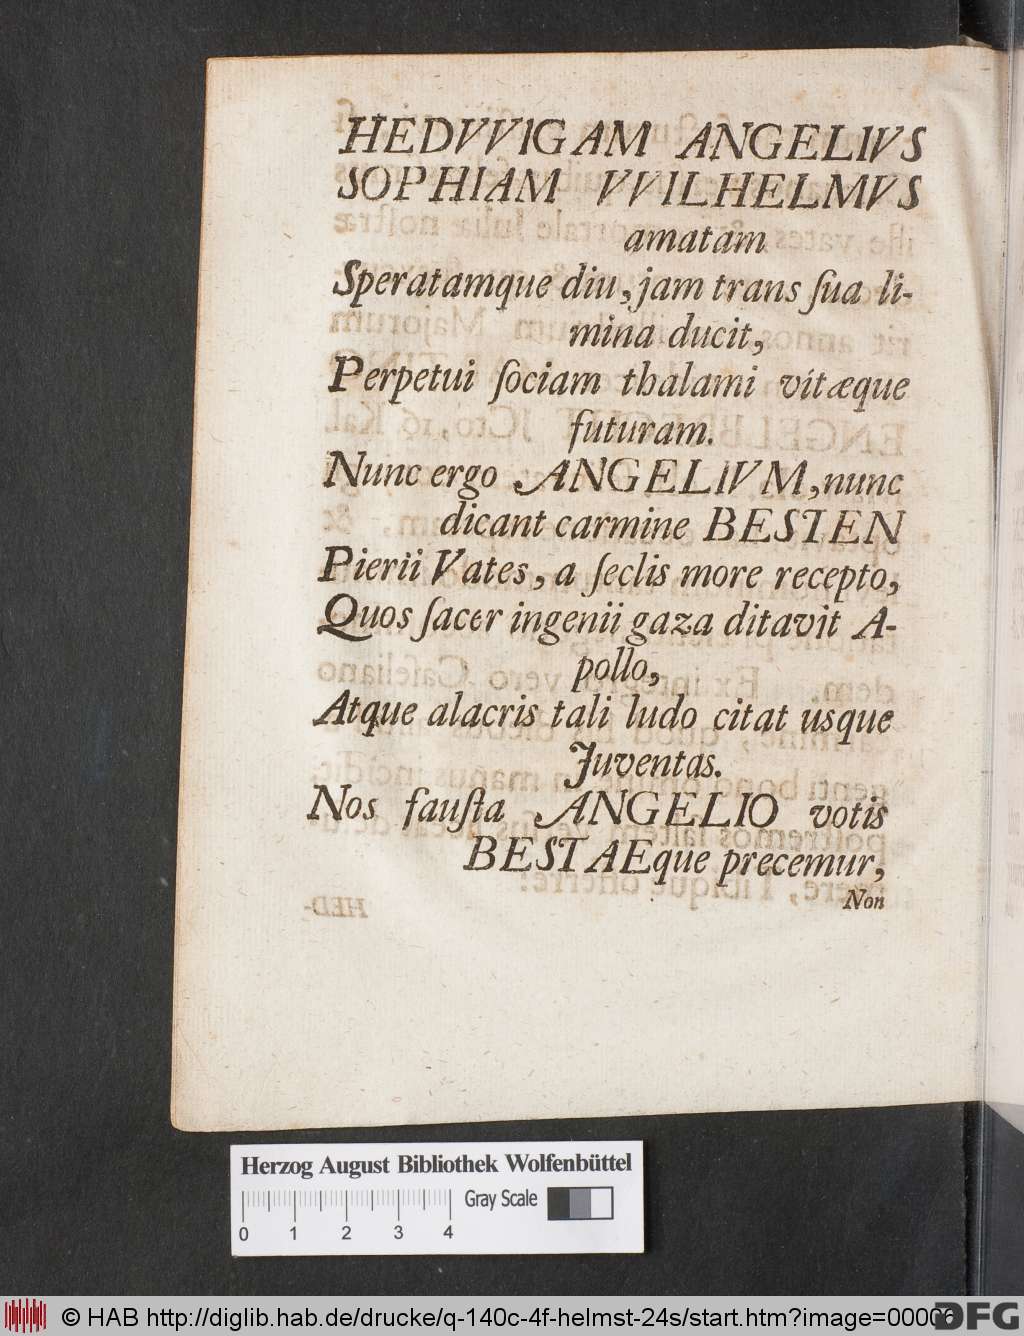 HEDVVIGAM ANGELIVS
SOPHIAM VVILHELMVS
amatam
Speratamque diu, jam trans ſua li-
mina ducit,
Perpetui ſociam thalami vitæque
futuram.
Nunc ergo ANGELIVM, nunc
dicant carmine BESTEN
Pierii Vates, a ſeclis more recepto,
Quos ſacer ingenii gaza ditavit A-
pollo,
Atque alacris tali ludo citat usque
Juventas.
Nos fauſta ANGELIO votis
BESTAEque precemur,
Non
Herzog August Bibliothek Wolfenbüttel
Gray Scale
0 1 2 3 4
© HAB http://diglib.hab.de/drucke/q-140c-4f-helmst-24s/start.htm?image=00006
DFG